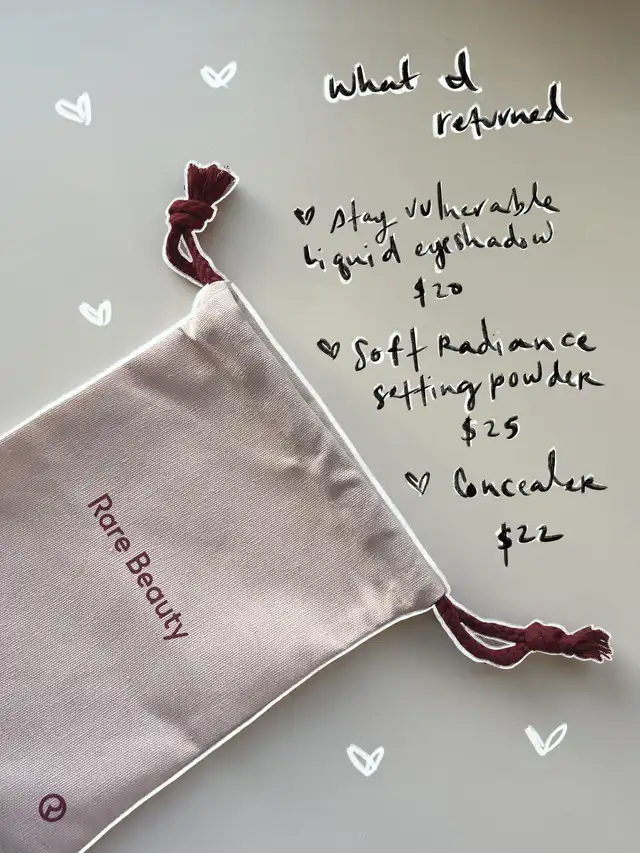 What I
returned
Stay vulnerable
liquid eyeshadow
$20
Soft Radiance
setting powder
$25
Concealer
$22
Rare Beauty
R